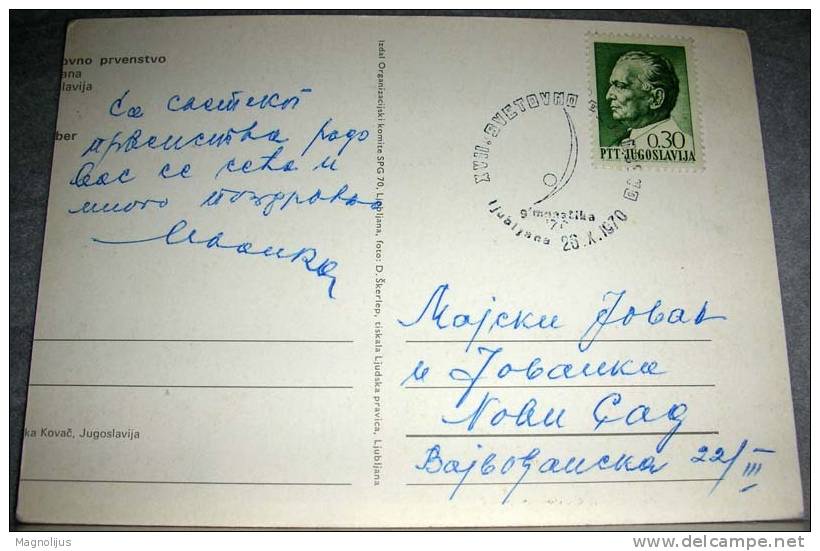 ovno prvenstvo
ana
slavija
ber
Са светског
првенства радо
вас се сећа и
много поздравља
ka Kovač, Jugoslavija
Izdal Organizacijski komite SPG 70, Ljubljana, foto: D. Škerlep, tiskala Ljudska pravica, Ljubljana
XVII. SVETOVNO
gimnastika
ljubljana 26.X.1970
0.30
PTT·JUGOSLAVIJA
Мајски Јован
и Јованка
Нови Сад
Војвођанска 22/III
Magnolijus
www.delcampe.net